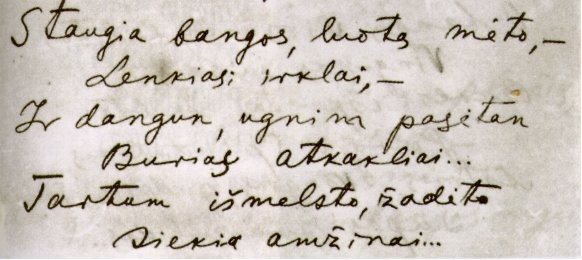 Staugia bangos, luotą mėto,–
Lenkiasi irklai,–
Ir dangun, ugnim pasėtan
Burias atkakliai...
Tartum išmelsto, žadėto
Siekia amžinai...